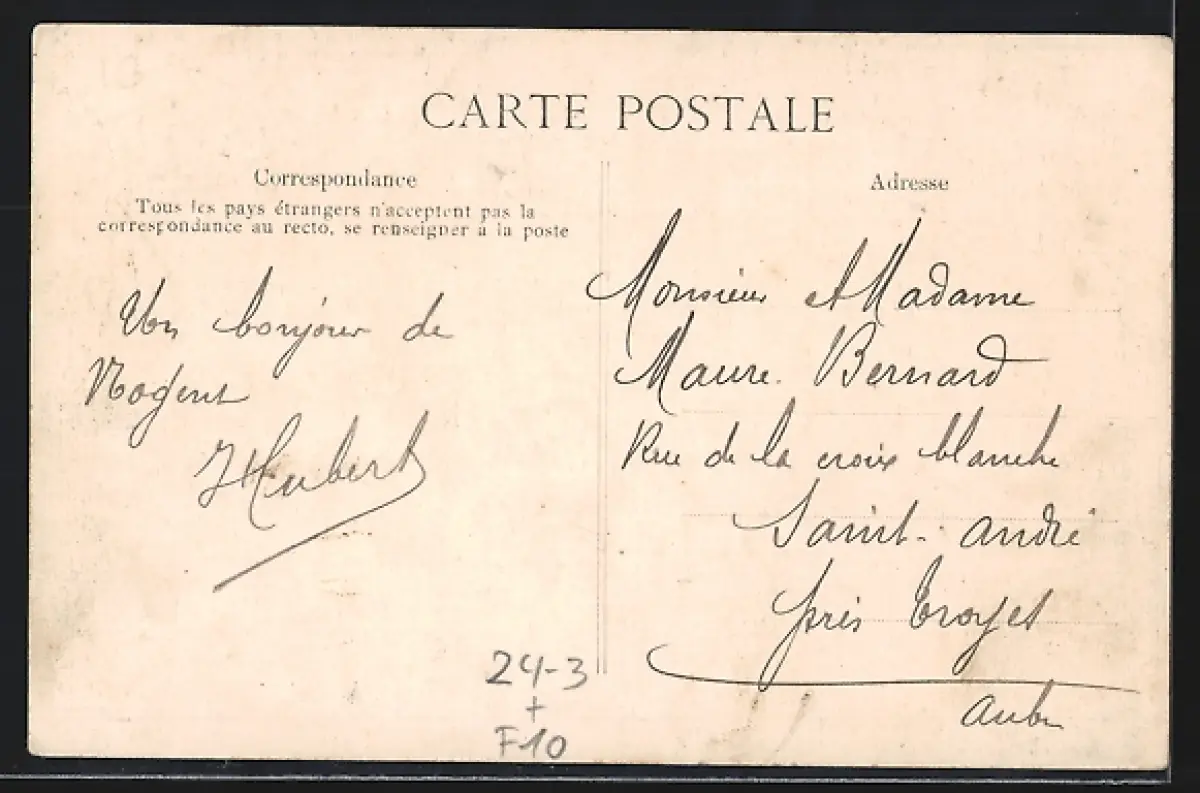 CARTE POSTALE
Correspondance
Tous les pays étrangers n'acceptent pas la
correspondance au recto, se renseigner à la poste
Un bonjour de
Nogent
J Hubert
Adresse
Monsieur et Madame
Maure. Bernard
Rue de la croix blanche
Saint-andré
près Troyes
aube
24-3
+
F10